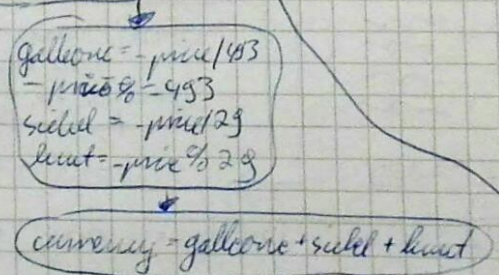 galleone = -price/493
-price % = 493
sickel = -price/29
knut = -price % 29
currency = galleone + sickel + knut